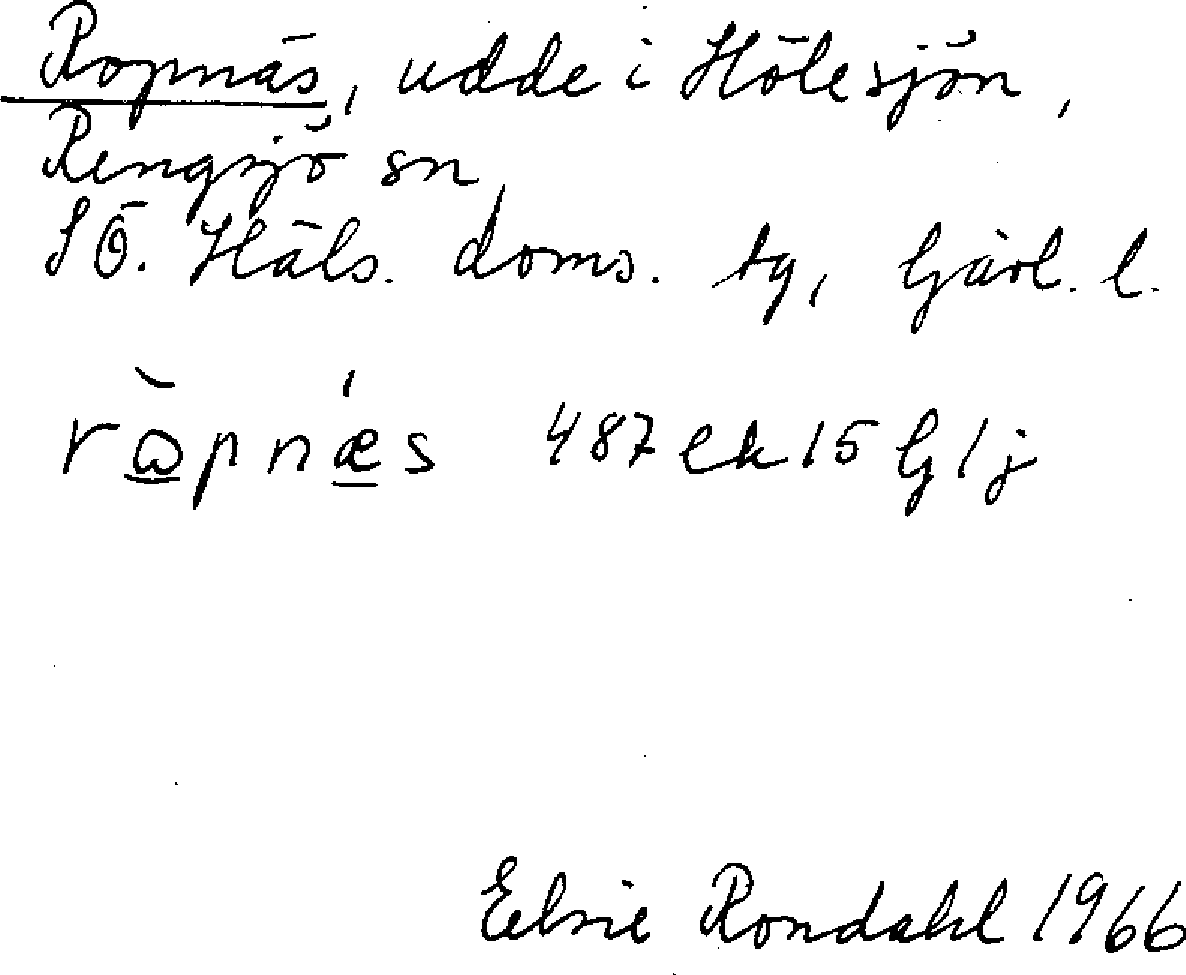 Ropnäs, udde i Hölesjön,
Rengsjö sn,
SÖ. Häls. doms. tg, Gävl. l.
ròpnǽs 487 ek 15 G 1 j
Elsie Rondahl 1966